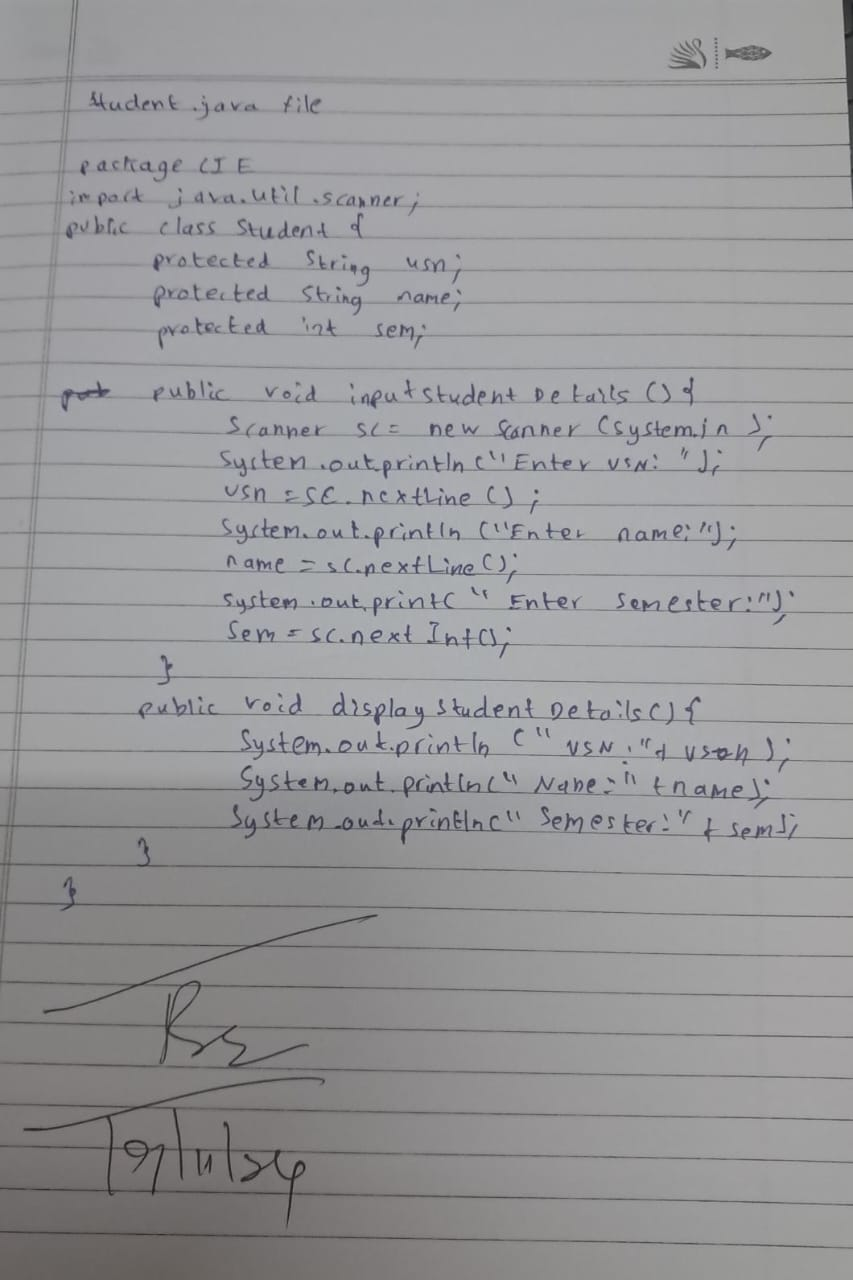 Student.java file
package CIE
import java.util.scanner;
public class Student {
protected String usn;
protected String name;
protected int sem;
public void inputstudent Details () {
Scanner sc = new Scanner (System.in );
System.out.println ("Enter USN: ");
usn = sc.nextLine () ;
System.out.println ("Enter name:");
name = sc.nextLine ();
system.out.print( " Enter Semester:");
Sem = sc.next Int();
}
public void display student Details() {
System.out.println (" USN :"+ usn );
System.out.println(" Name:" + name);
System.out.println(" Semester:" + sem);
}
}
19/11/24